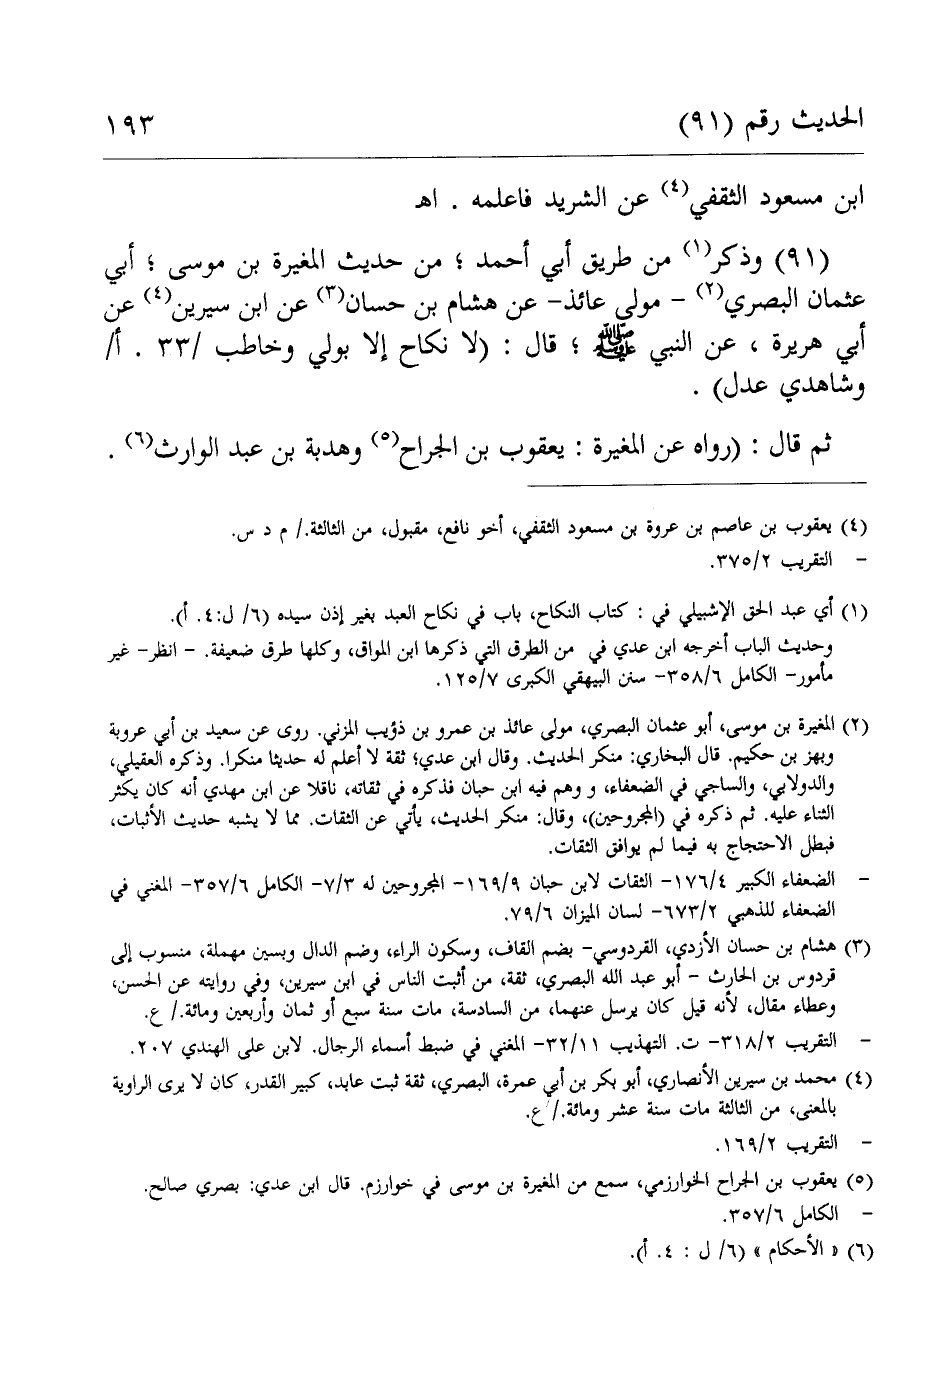 الحديث رقم (٩١)
١٩٣
ابن مسعود الثقفي(٤) عن الشريد فاعلمه . اهـ
(٩١) وذكر(١) من طريق أبي أحمد ؛ من حديث المغيرة بن موسى ؛ أبي
عثمان البصري(٢) - مولى عائذ- عن هشام بن حسان(٣) عن ابن سيرين(٤) عن
أبي هريرة ، عن النبي ﷺ ؛ قال : (لا نكاح إلا بولي وخاطب /٣٣ . أ/
وشاهدي عدل) .
ثم قال : (رواه عن المغيرة : يعقوب بن الجراح(٥) وهدبة بن عبد الوارث(٦) .
(٤) يعقوب بن عاصم بن عروة بن مسعود الثقفي، أخو نافع، مقبول، من الثالثة./ م د س.
- التقريب ٣٧٥/٢.
(١) أي عبد الحق الإشبيلي في : كتاب النكاح، باب في نكاح العبد بغير إذن سيده (٦/ ل:٤. أ).
وحديث الباب أخرجه ابن عدي في من الطرق التي ذكرها ابن المواق، وكلها طرق ضعيفة. - انظر- غير
مأمور- الكامل ٣٥٨/٦- سنن البيهقي الكبرى ١٢٥/٧.
(٢) المغيرة بن موسى، أبو عثمان البصري، مولى عائذ بن عمرو بن ذؤيب المزني. روى عن سعيد بن أبي عروبة
وبهز بن حكيم. قال البخاري: منكر الحديث. وقال ابن عدي؛ ثقة لا أعلم له حديثا منكرا. وذكره العقيلي،
والدولابي، والساجي في الضعفاء، و وهم فيه ابن حبان فذكره في ثقاته، ناقلا عن ابن مهدي أنه كان يكثر
الثناء عليه. ثم ذكره في (المجروحين)، وقال: منكر الحديث، يأتي عن الثقات. مما لا يشبه حديث الأثبات،
فبطل الاحتجاج به فيما لم يوافق الثقات.
- الضعفاء الكبير ١٧٦/٤- الثقات لابن حبان ١٦٩/٩- المجروحين له ٧/٣- الكامل ٣٥٧/٦- المغني في
الضعفاء للذهبي ٦٧٣/٢- لسان الميزان ٧٩/٦.
(٣) هشام بن حسان الأزدي، القردوسي- بضم القاف، وسكون الراء، وضم الدال وبسين مهملة، منسوب إلى
قردوس بن الحارث - أبو عبد الله البصري، ثقة، من أثبت الناس في ابن سيرين، وفي روايته عن الحسن،
وعطاء مقال، لأنه قيل كان يرسل عنهما، من السادسة، مات سنة سبع أو ثمان وأربعين ومائة./ ع.
- التقريب ٣١٨/٢- ت. التهذيب ٣٢/١١- المغني في ضبط أسماء الرجال. لابن على الهندي ٢٠٧.
(٤) محمد بن سيرين الأنصاري، أبو بكر بن أبي عمرة، البصري، ثقة ثبت عابد، كبير القدر، كان لا يرى الراوية
بالمعنى، من الثالثة مات سنة عشر ومائة./ ع.
- التقريب ١٦٩/٢.
(٥) يعقوب بن الجراح الخوارزمي، سمع من المغيرة بن موسى في خوارزم. قال ابن عدي: بصري صالح.
- الكامل ٣٥٧/٦.
(٦) « الأحكام » (٦/ ل : ٤. أ).